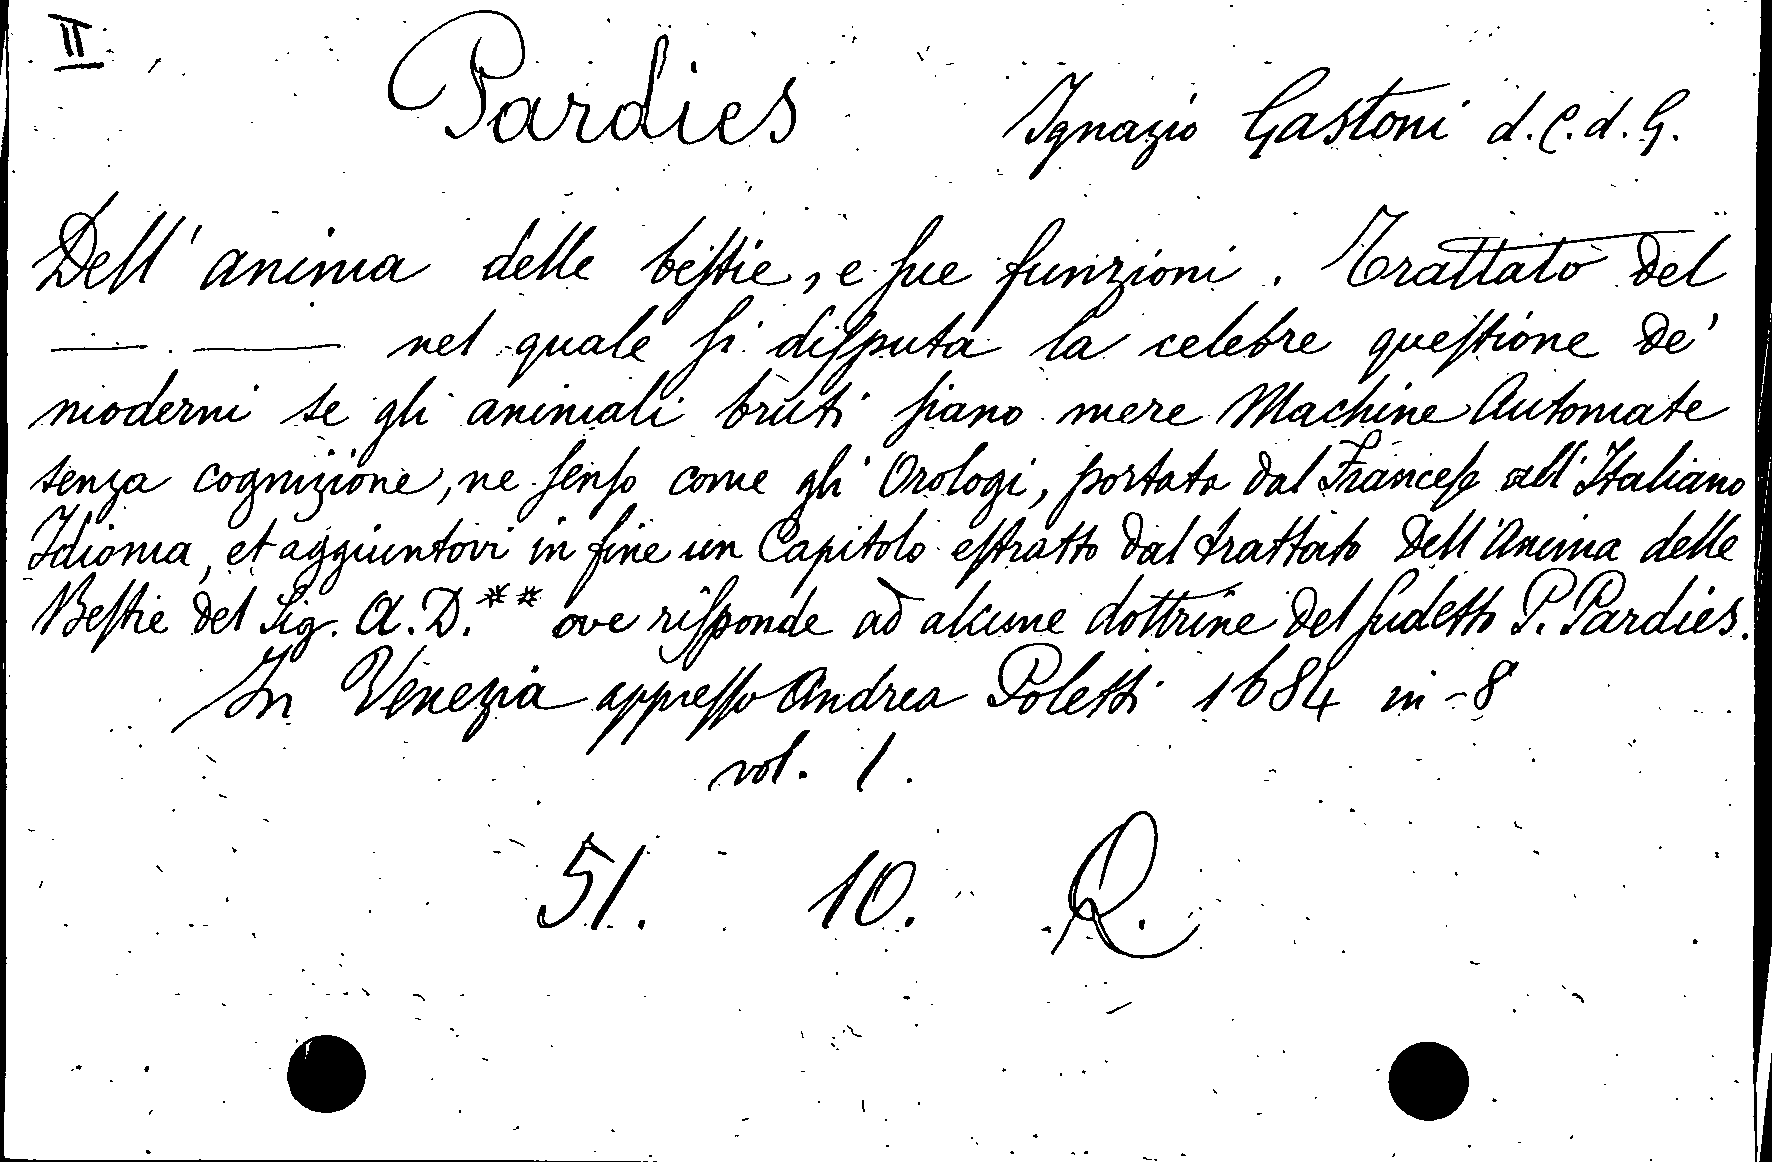 II
Pardies Ignazio Gastoni d. C. d. G.
Dell' anima delle beſtie, e ſue funzioni. Trattato del
—— . —— nel quale ſi diſputa la celebre queſtione de'
moderni se gli animali bruti ſiano mere Machine Automate
senza cognizione, ne ſenſo come gli Orologi, portato dal Franceſe all' Italiano
Idioma, et aggiuntovi in fine un Capitolo eſtratto dal trattato Dell' Anima delle
Beſtie del Sig. A. D.** ove riſponde ad alcune dottrine del ſudetto P. Pardies.
In Venezia appreſſo Andrea Poletti 1684 in-8
vol. 1.
51. 10. Q.